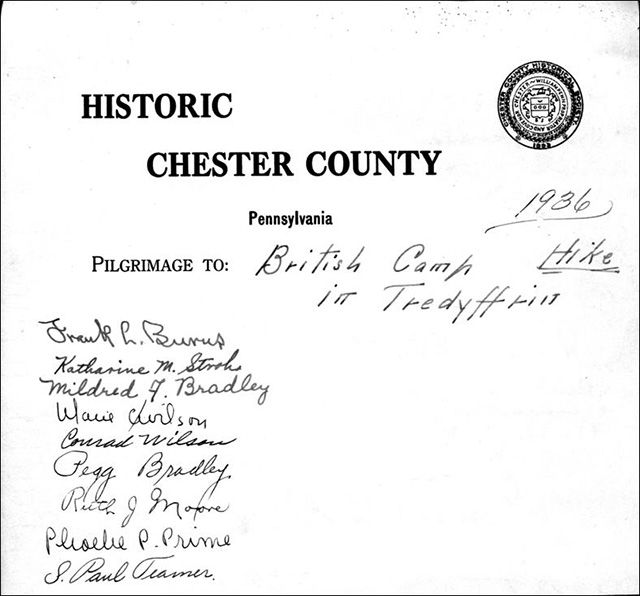 HISTORIC
CHESTER COUNTY
Pennsylvania
CHESTER COUNTY HISTORICAL SOCIETY
1893
1936
PILGRIMAGE TO: British Camp Hike
in Tredyffrin
Frank L. Burns
Katharine M. Stroh
Mildred F. Bradley
Marie Wilson
Conrad Wilson
Pegg Bradley
Ruth J Moore
Phoebe P. Prime
S. Paul Teamer.